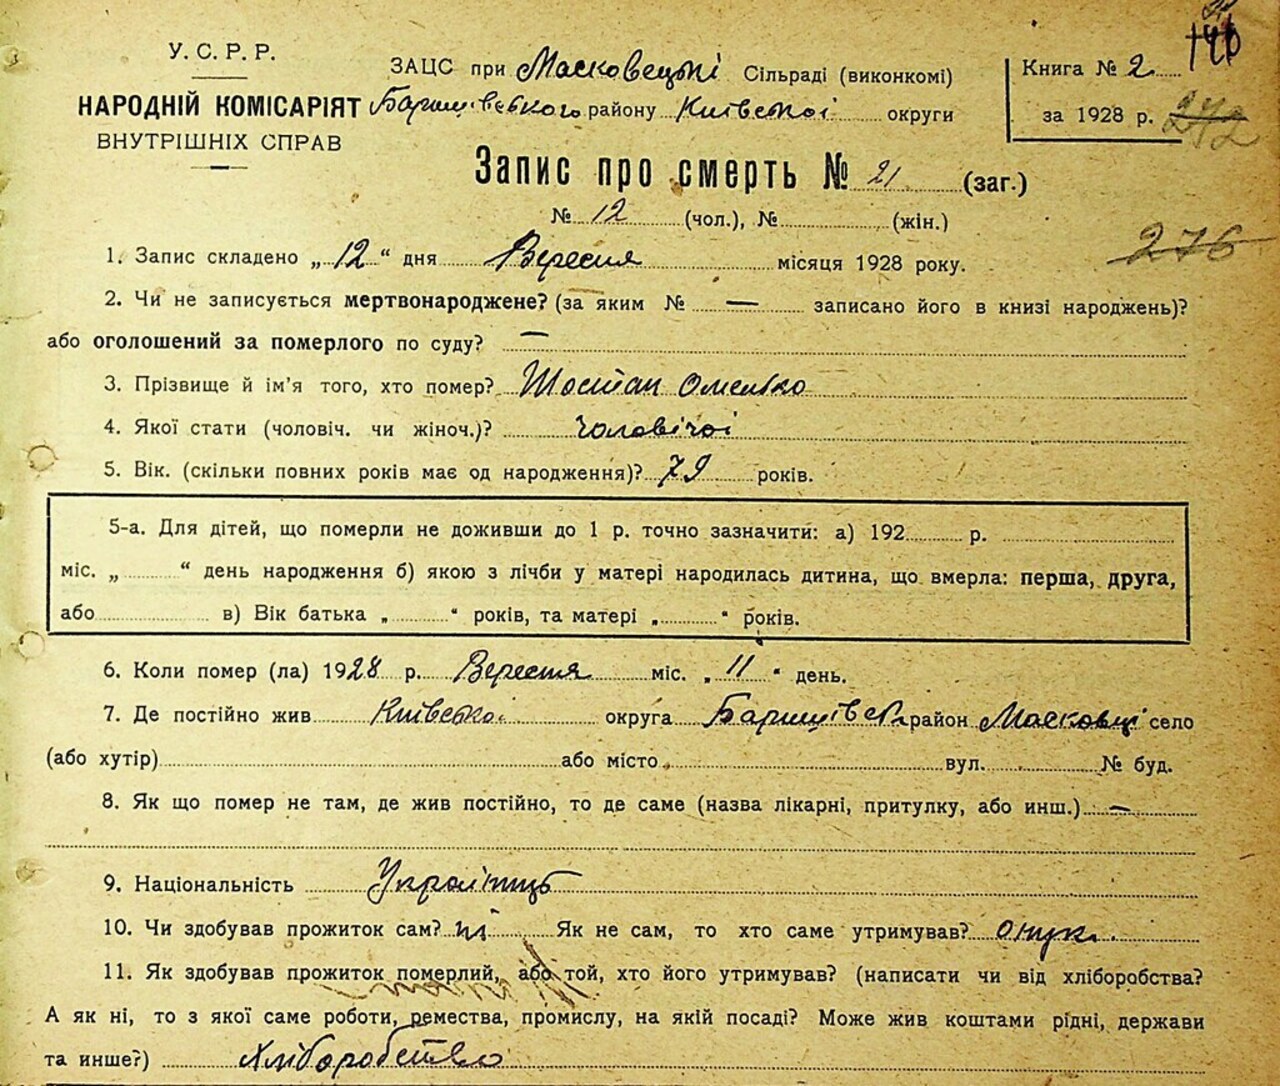 У. С. Р. Р.
НАРОДНІЙ КОМІСАРІЯТ
ВНУТРІШНІХ СПРАВ
ЗАЦС при Масковецькі Сільраді (виконкомі)
Баришівського району Київської округи
Книга № 2
за 1928 р.
146
272
Запис про смерть № 21 (заг.)
№ 12 (чол.), № (жін.)
276
1. Запис складено „12“ дня Вересня місяця 1928 року.
2. Чи не записується мертвонароджене? (за яким № — записано його в книзі народжень)?
або оголошений за померлого по суду? —
3. Прізвище й ім'я того, хто помер? Шостак Омелько
4. Якої стати (чоловіч. чи жіноч.)? чоловічої
5. Вік. (скільки повних років має од народження)? 79 років.
5-а. Для дітей, що померли не доживши до 1 р. точно зазначити: а) 192 р.
міс. „ “ день народження б) якою з лічби у матері народилась дитина, що вмерла: перша, друга,
або в) Вік батька „ “ років, та матері „ “ років.
6. Коли помер (ла) 1928 р. Вересня міс. „11“ день.
7. Де постійно жив Київської округа Баришівськ район Масковці село
(або хутір) або місто вул. № буд.
8. Як що помер не там, де жив постійно, то де саме (назва лікарні, притулку, або инш.) —
9. Національність Українць
10. Чи здобував прожиток сам? ні Як не сам, то хто саме утримував? онук
11. Як здобував прожиток померлий, або той, хто його утримував? (написати чи від хліборобства?
А як ні, то з якої саме роботи, ремества, промислу, на якій посаді? Може жив коштами рідні, держави
та инше?) Хліборобство